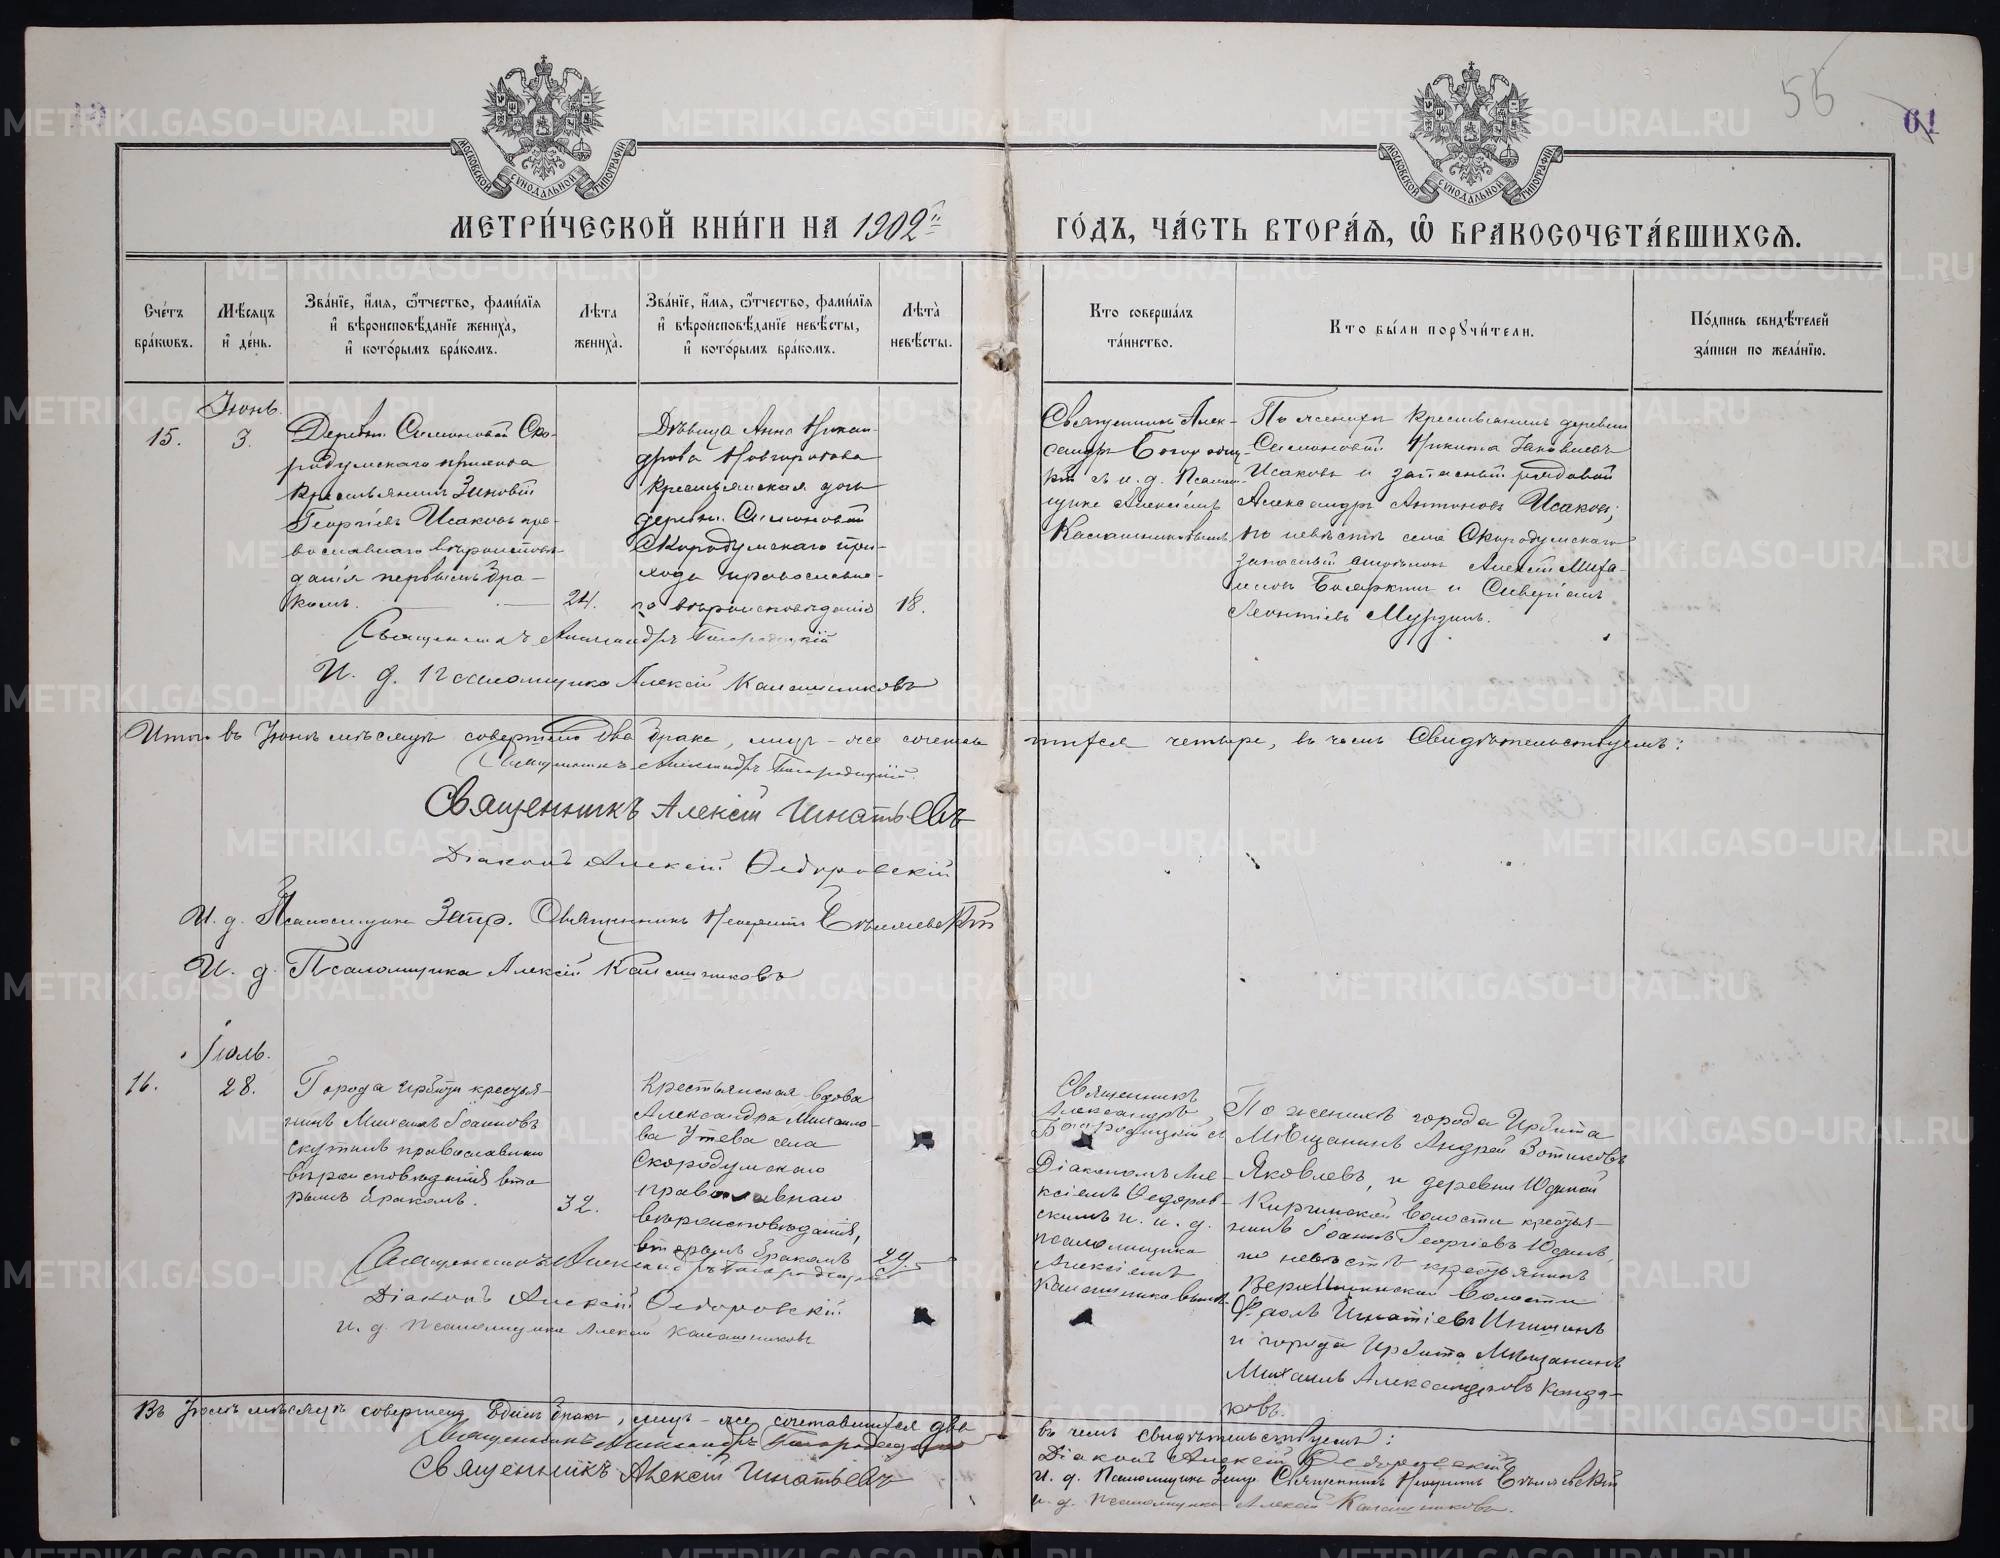 55
61
МОСКОВСКОЙ СѴНОДАЛЬНОЙ ТИПОГРАФІИ
МОСКОВСКОЙ СѴНОДАЛЬНОЙ ТИПОГРАФІИ
МЕТРИ́ЧЕСКОЙ КНИ́ГИ НА 1902й
ГО́ДЪ, ЧА́СТЬ ВТОРА́Я, Ѡ҆ БРАКОСОЧЕТА́ВШИХСЯ.
Сче́тъ бра́кѡвъ.
Мѣ́сяцъ и҆ де́нь.
Зва́нїе, и҆́мя, ѻ҆́тчество, фами́лїя и҆ вѣроисповѣ́данїе жениха̀, и҆ кото́рымъ бра́комъ.
Лѣ́та жениха̀.
Зва́нїе, и҆́мя, ѻ҆́тчество, фами́лїя и҆ вѣроисповѣ́данїе невѣ́сты, и҆ кото́рымъ бра́комъ.
Лѣ́та невѣ́сты.
Кто соверша́лъ та́инство.
Кто бы́ли порꙋчи́тели.
По́дпись свидѣ́телей за́писи по жела́нїю.
Іюнь.
15.
3.
Деревни Симоновой Ско-
родумскаго прихода
крестьянинъ Зиновій
Георгіевъ Исаковъ пра-
вославнаго вѣроисповѣ-
данія первымъ бра-
комъ.
24.
Дѣвица Анна Никан-
дрова Новгородова
крестьянская дочь
деревни Симоновой
Скородумскаго при-
хода православна-
го вѣроисповѣданія
18.
Священникъ Алек-
сандръ Богородиц-
кій съ и. д. Псалом-
щика Алексіемъ
Калашниковымъ
По женихѣ крестьянинъ деревни
Симоновой Никита Іаковлевъ
Исаковъ и запасный рядовой
Александръ Антоновъ Исаковъ;
по невѣстѣ села Скородумскаго
запасный Алексій Миха-
иловъ Бояркинъ и Северіанъ
Леонтіевъ Мурзинъ.
Священникъ Александръ Богородицкій
И. д. Псаломщика Алексій Калашниковъ
Итого въ Іюнѣ мѣсяцѣ совершено два брака, лицъ-же сочетав
шихся четыре, въ чемъ Свидѣтельствуемъ:
Священникъ Александръ Богородицкій.
Священникъ Алексій Игнатьевъ
Діаконъ Алексій Ѳедоровскій
И. д. Псаломщика Запр. Священникъ
И. д. Псаломщика Алексій Калашниковъ
Іюль.
16.
28.
Города Ирбити крестья-
нинъ Михаилъ Іоанновъ
Скутинъ православнаго
вѣроисповѣданія вто
рымъ бракомъ.
32.
Крестьянская вдова
Александра Михаило-
ва Утева села
Скородумскаго
православнаго
вѣроисповѣданія,
вторымъ бракомъ
29.
Священникъ
Александръ
Богородицкій с
Діакономъ Але-
ксіемъ Ѳедоров-
скимъ и. и. д.
псаломщика
Алексіемъ
Калашниковымъ.
По женихѣ города Ирбита
Мѣщанинъ Андрей Зотиковъ
Яковлевъ, и деревни Юдиной
Киргинской волости крестья-
нинъ Іоаннъ Георгіевъ Юдинъ,
по невѣстѣ крестьянинъ
волости
Фролъ Игнатіевъ
и города Ирбита Мѣщанинъ
Михаилъ Александровъ Конда-
ковъ.
Священникъ Александръ Богородицкій
Діаконъ Алексій Ѳедоровскій
и. д. псаломщика Алексій Калашниковъ
Въ Іюлѣ мѣсяцѣ совершенъ одинъ бракъ, лицъ-же сочетавшихся два
въ чемъ свидѣтельствуемъ:
Священникъ Александръ Богородицкій
Священникъ Алексій Игнатьевъ
Діаконъ Алексій Ѳедоровскій
И. д. Псаломщика Запр Священникъ
и. д. псаломщика Алексій Калашниковъ.
METRIKI.GASO-URAL.RU